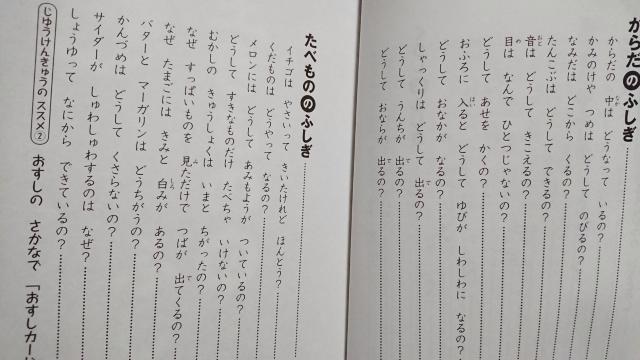 からだのふしぎ
からだの 中は どうなって いるの?
かみのけや つめは どうして のびるの?
なみだは どこから くるの?
たんこぶは どうして できるの?
音は どうして きこえるの?
目は なんで ひとつじゃないの?
どうして あせを かくの?
どうして おなかが なるの?
おふろに 入ると どうして ゆびが しわしわに なるの?
しゃっくりは どうして 出るの?
どうして うんちが 出るの?
どうして おならが 出るの?
たべもののふしぎ
イチゴは やさいって きいたけれど ほんとう?
くだものは どうやって なるの?
メロンには どうして あみもようが ついているの?
どうして すきなものだけ たべちゃ いけないの?
むかしの きゅうしょくは いまと ちがったの?
なぜ すっぱいものを 見ただけで つばが 出てくるの?
なぜ たまごには きみと 白みが あるの?
バターと マーガリンは どうちがうの?
かんづめは どうして くさらないの?
サイダーが しゅわしゅわするのは なぜ?
しょうゆって なにから できているの?
じゆうけんきゅうのススメ② おすしの さかなで 「おすしカー